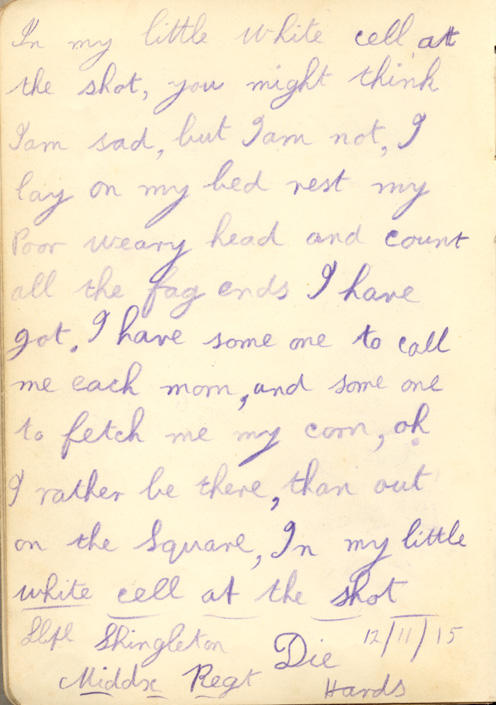 In my little white cell at
the shot, you might think
I am sad, but I am not, I
lay on my bed rest my
Poor weary head and count
all the fag ends I have
got. I have some one to call
me each morn, and some one
to fetch me my corn, oh
I rather be there, than out
on the Square, In my little
white cell at the shot
L/Cpl Shingleton
12/11/15
Middx Regt
Die
Hards